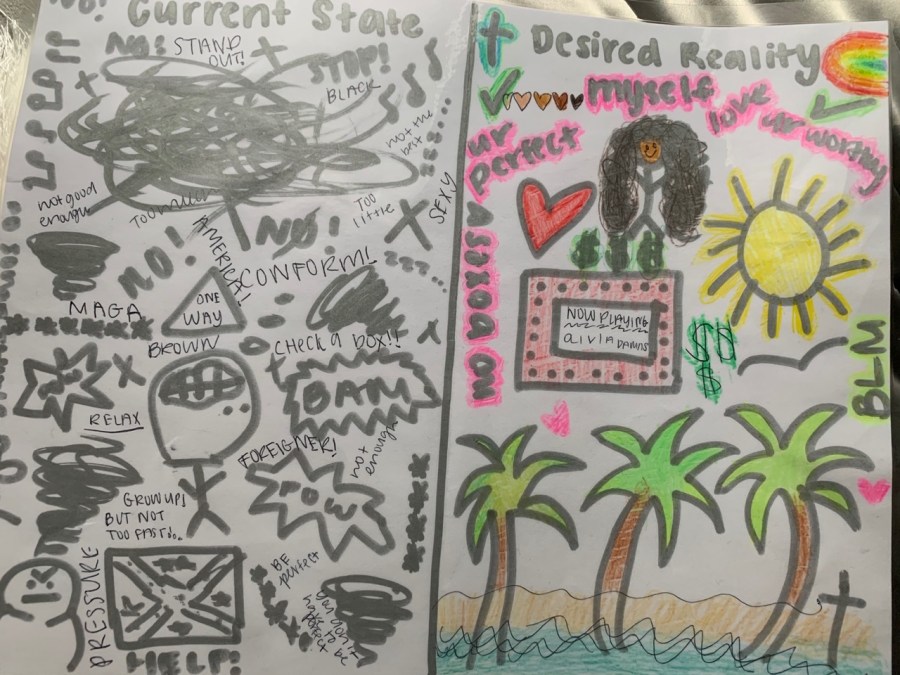 NO!
Current State
NO!
STAND
OUT!
STOP!
BLACK
not the
best
not good
enough
Too much
Too
little
SEXY
AMERICA!
NO!
NO!
CONFORM!
MAGA
ONE
WAY
BROWN
CHECK A BOX!!
BAM
RELAX
FOREIGNER!
not
enough
POW
GROW UP!
BUT NOT
TOO FAST...
PRESSURE
BE
perfect
you don't
have to
be
perfect
HELP!
Desired Reality
myself
love
ur worthy
ur
perfect
$$$
NOW PLAYING
$$
$
BLM